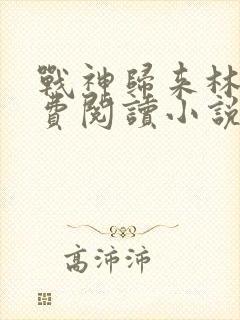 戰神歸来林
費閱讀小說
高沛沛